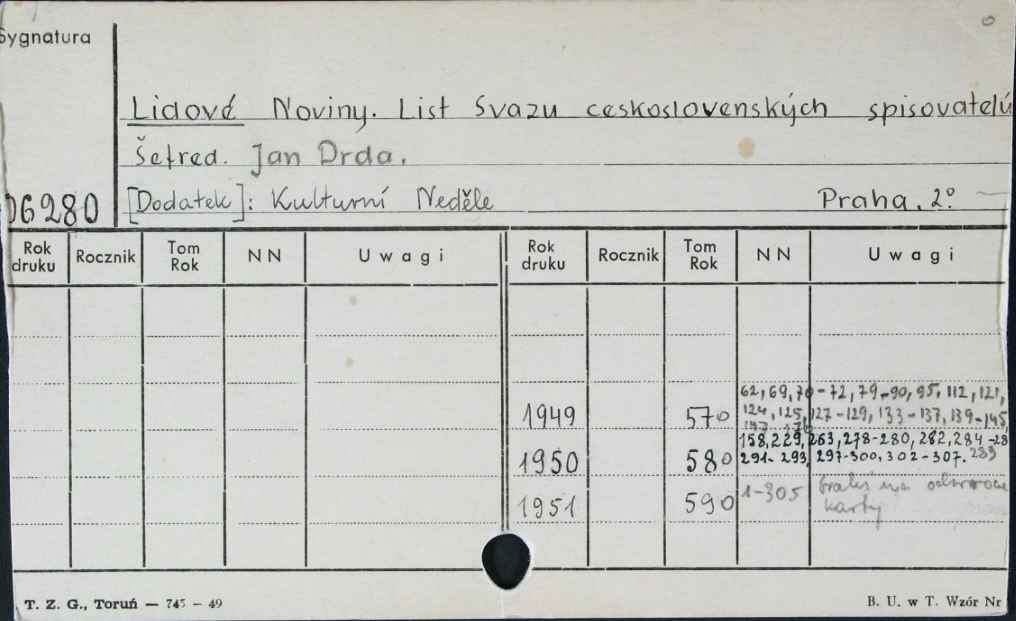 Sygnatura
Lidové Noviny. List Svazu československých spisovatelů
Šefred. Jan Drda.
06280 [Dodatek]: Kulturní Neděle Praha, 2°
Rok druku Rocznik Tom Rok NN Uwagi Rok druku Rocznik Tom Rok NN Uwagi
62, 69, 70-72, 79-90, 95, 112, 121,
1949 570 124, 125, 127-129, 133-137, 139-145,
158, 229, 263, 278-280, 282, 284-
1950 580 291-293, 297-300, 302-307.
1951 590 1-305 braki na odwrocie
karty
T. Z. G., Toruń — 745 — 49 B. U. w T. Wzór Nr